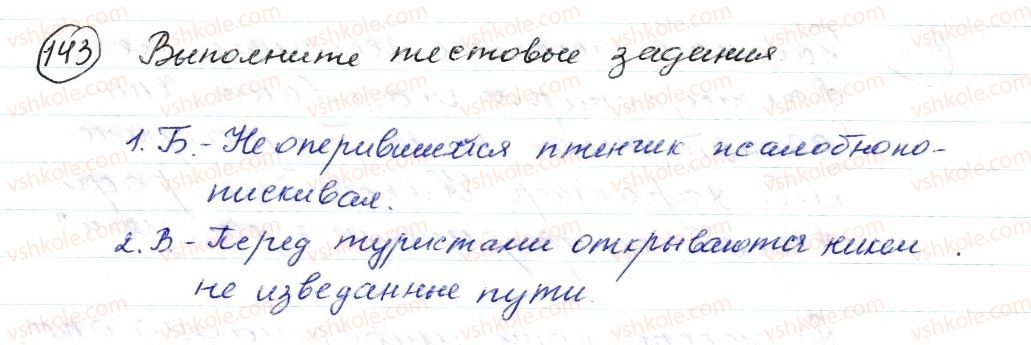 143 Выполните тестовые задания
1. Б. - Не оперившийся птенчик жалобнопо-
пискивал.
2. В. - Перед туристами открываются никем
не изведанные пути.